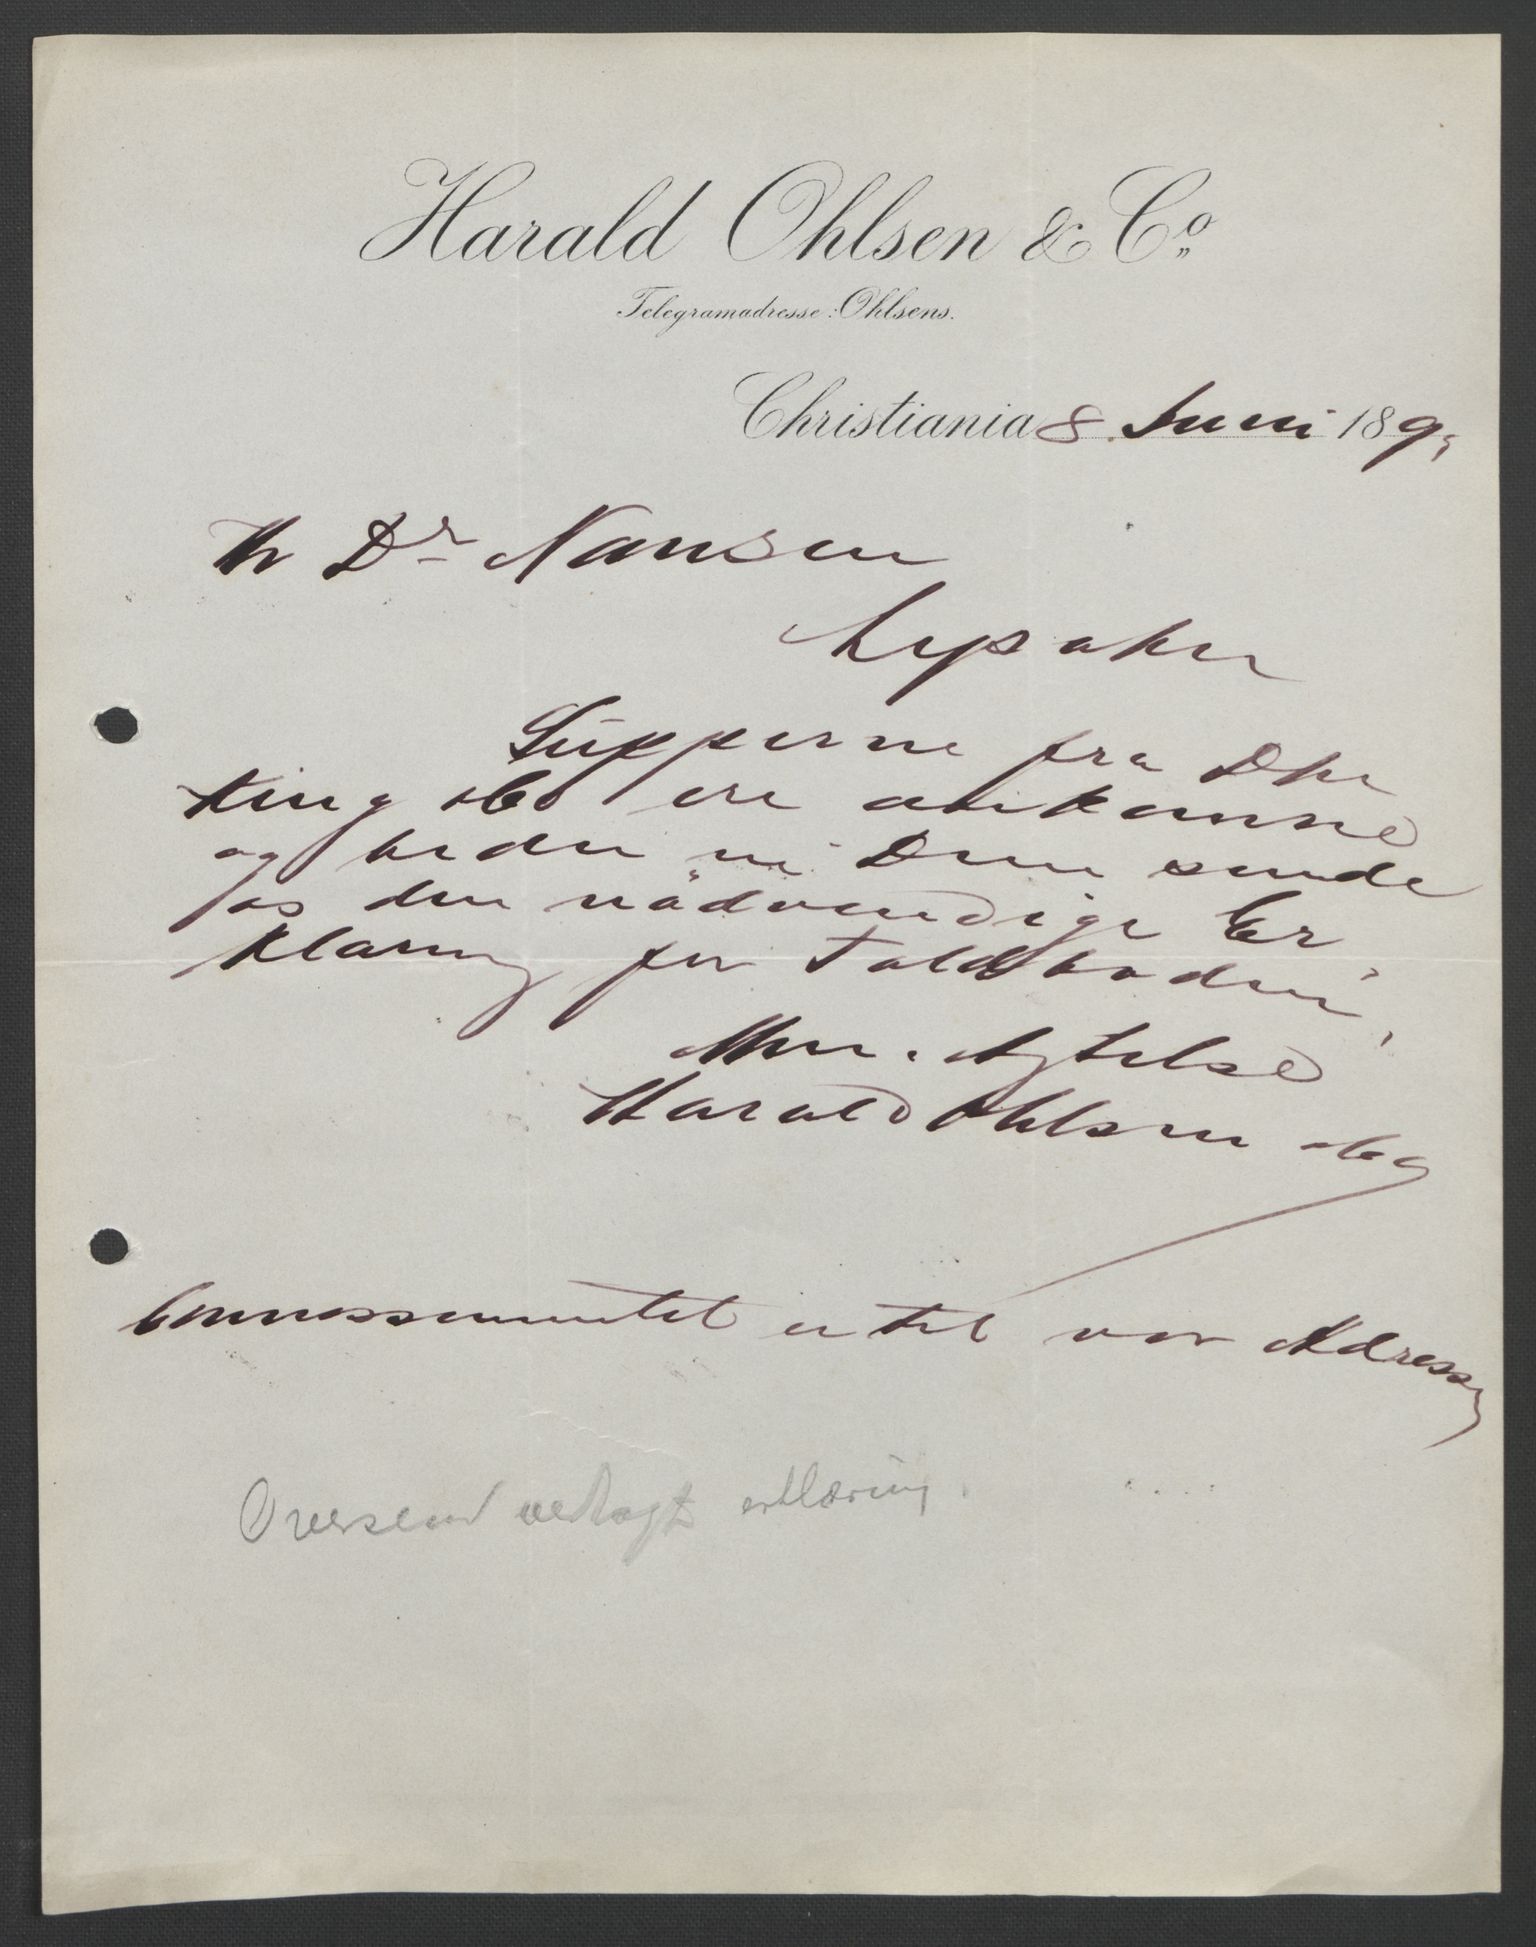 Harald Ohlsen & Co
Telegramadresse: Ohlsens.
Christiania 8. Juni 189
Hr Dr Nansen
Lysaker
Supperne fra Dhe
King &Co ere ankomne
og beder vi Dem sende
os den nödvendige Er
klæring for Toldboden.
Mm. Agtelse
Harald Ohlsen &Co
Connossementet er til vor Adresse
Oversend vedlagt erklæring.